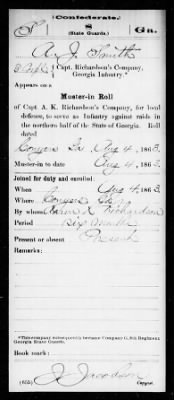 (Confederate.)
S 8 Ga.
(State Guards.)
A. J. Smith
Capt. Richardson's Company,
Georgia Infantry.*
Appears on a
Muster-in Roll
of Capt. A. K. Richardson's Company, for local
defense, to serve as Infantry against raids in
the northern half of the State of Georgia. Roll
dated
Conyers Ga Aug 4, 1863.
Muster-in to date Aug 4, 1863.
Joined for duty and enrolled:
When Aug 4, 1863
Where Conyers
By whom Richardson
Period Six months
Present or absent Present
Remarks:
*This company subsequently became Company G, 8th Regiment
Georgia State Guards.
Book mark:
J. Jacobson
(655) Copyist.